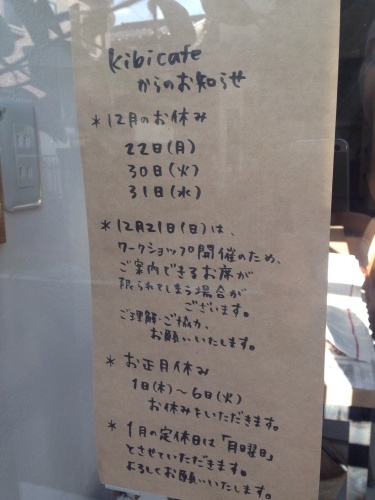 kibicafe
からのお知らせ
＊12月のお休み
22日(月)
30日(火)
31日(水)
＊12月21日(日)は、
ワークショップ開催のため、
ご案内できるお席が
限られてしまう場合が
ございます。
ご理解・ご協力、
お願いいたします。
＊お正月休み
1日(木)～6日(火)
お休みをいただきます。
＊1月の定休日は「月曜日」
とさせていただきます。
よろしくお願いいたします。